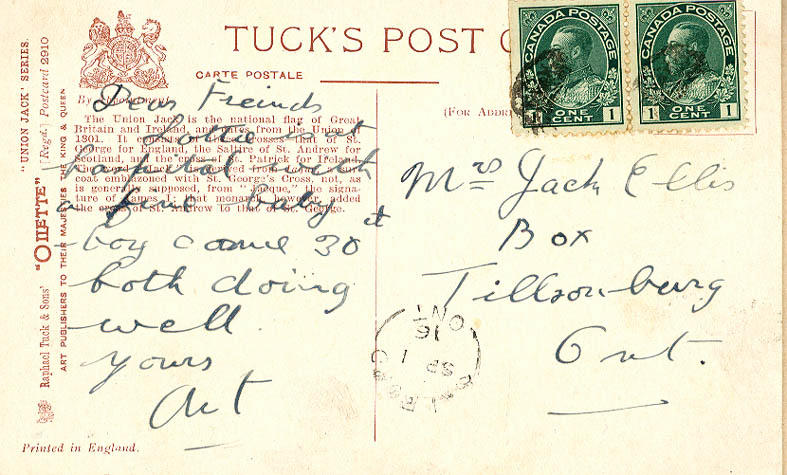 TUCK'S POST
CARTE POSTALE
(FOR ADDR
By Appointment.
The Union Jack is the national flag of Great
Britain and Ireland, and dates from the Union
1801. It consists of crosses that of St.
George for England, the Saltire of St. Andrew for
Scotland, and the cross of St. Patrick for Ireland.
derived from
coat emblazoned with St. George's Cross, not, as
is generally supposed, from "Jacque," the signa-
ture of James I; that monarch, however, added
the cross of St. Andrew to that of St. George.
Dear Freinds
at
hospital with
a fine baby
boy came 30
both doing
well.
yours
Art
Mrs Jack Ellis
Box
Tillsonburg
Ont.
CANADA POSTAGE
1 ONE CENT 1
CANADA POSTAGE
1 ONE CENT 1
ONT
16
SP 1
"UNION JACK" SERIES.
Raphael Tuck & Sons' "OILETTE" [Regd.] Postcard 2910
ART PUBLISHERS TO THEIR MAJESTIES THE KING & QUEEN
Printed in England.